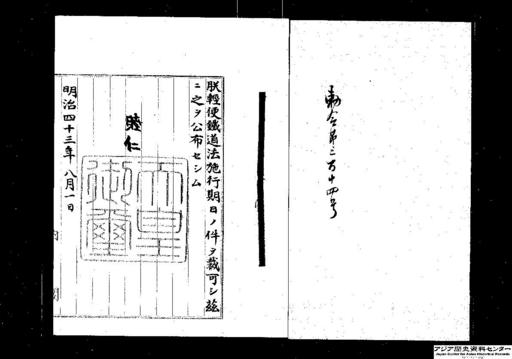 勅令第三百十四号
朕輕便鐵道法施行期日ノ件ヲ裁可シ茲
ニ之ヲ公布セシム
睦仁
天皇
御璽
明治四十三年八月一日
内閣
アジア歴史資料センター
Japan Center for Asian Historical Records